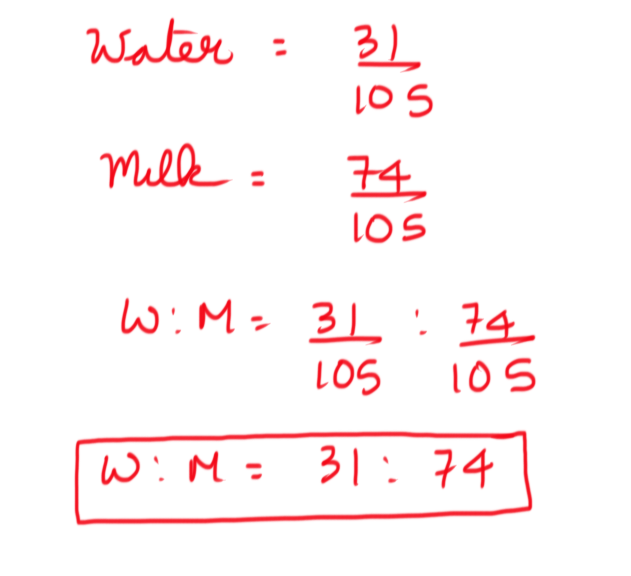 Water = 31/105
Milk = 74/105
W : M = 31/105 : 74/105
W : M = 31 : 74